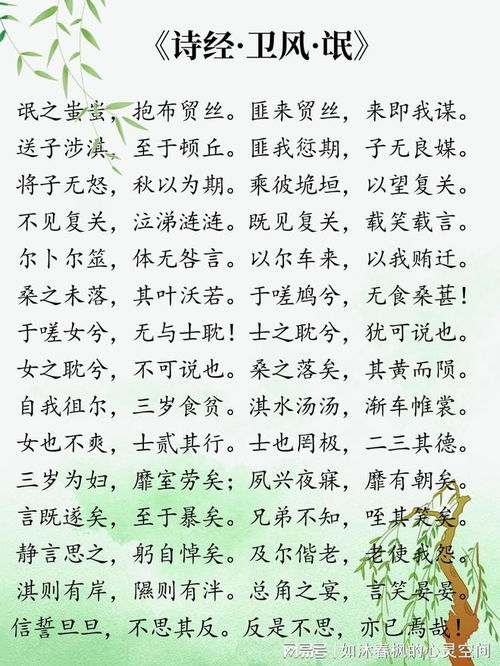 《诗经·卫风·氓》
氓之蚩蚩，抱布贸丝。匪来贸丝，来即我谋。
送子涉淇，至于顿丘。匪我愆期，子无良媒。
将子无怒，秋以为期。乘彼垝垣，以望复关。
不见复关，泣涕涟涟。既见复关，载笑载言。
尔卜尔筮，体无咎言。以尔车来，以我贿迁。
桑之未落，其叶沃若。于嗟鸠兮，无食桑葚！
于嗟女兮，无与士耽！士之耽兮，犹可说也。
女之耽兮，不可说也。桑之落矣，其黄而陨。
自我徂尔，三岁食贫。淇水汤汤，渐车帷裳。
女也不爽，士贰其行。士也罔极，二三其德。
三岁为妇，靡室劳矣；夙兴夜寐，靡有朝矣。
言既遂矣，至于暴矣。兄弟不知，咥其笑矣。
静言思之，躬自悼矣。及尔偕老，老使我怨。
淇则有岸，隰则有泮。总角之宴，言笑晏晏。
信誓旦旦，不思其反。反是不思，亦已焉哉！
搜狐号@如沐春枫的心灵空间